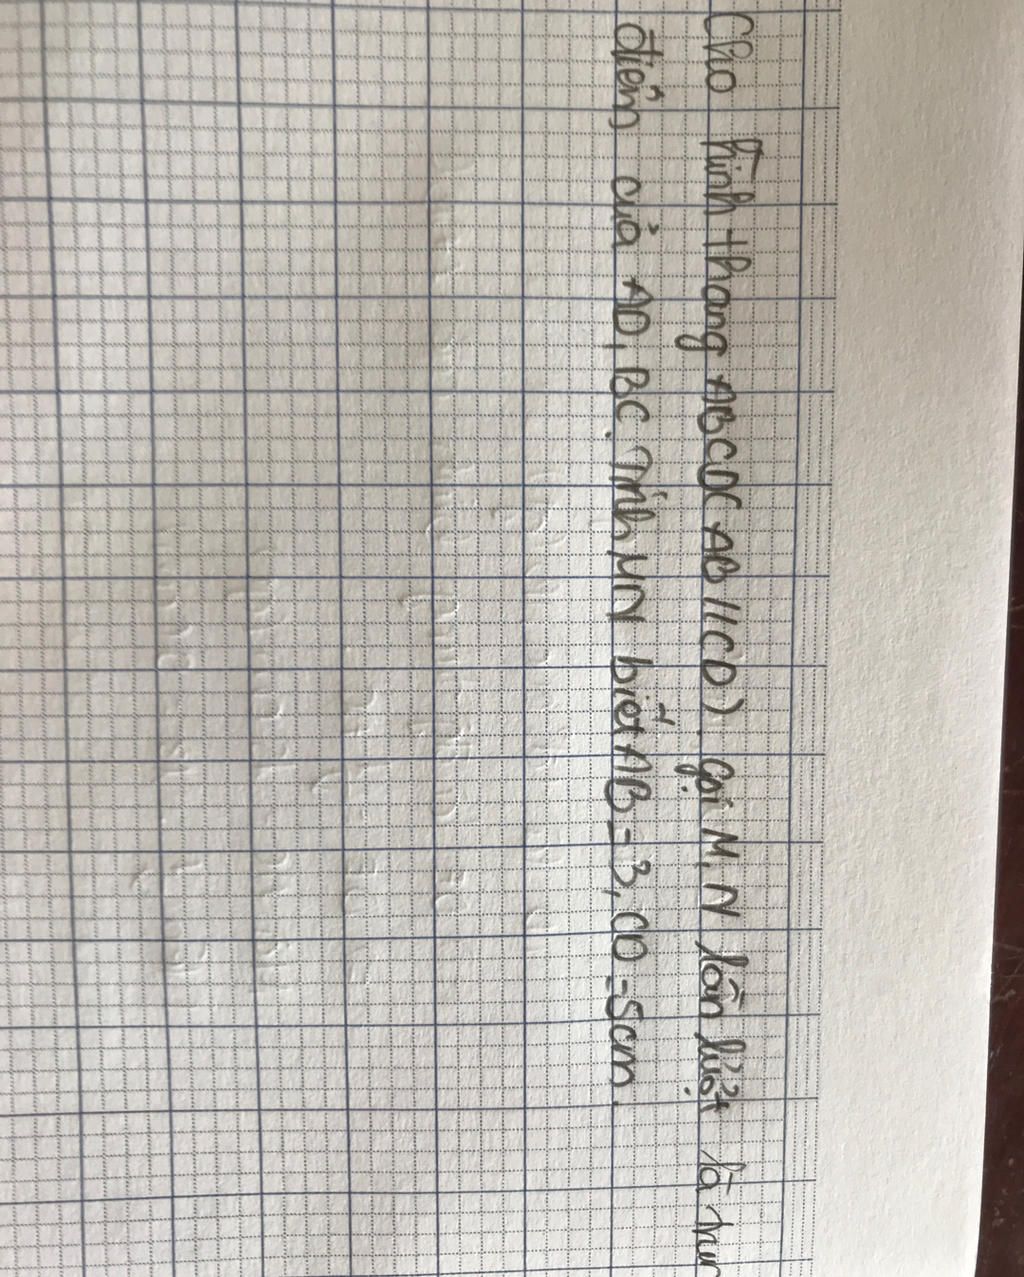 Cho hình thang ABCD( AB//CD). gọi M, N lần lượt là trun
điểm của AD, BC. Tính MN biết AB=3, CD=5cm.